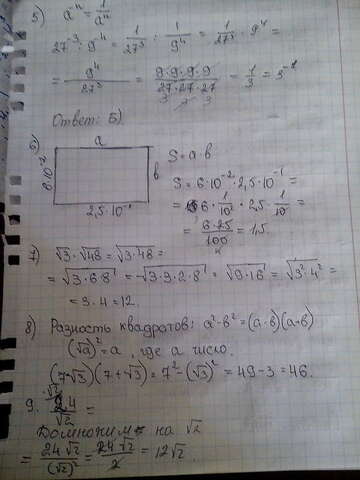 5) a⁻ⁿ = 1/aⁿ
27⁻³ : 9⁻⁴ = 1/27³ : 1/9⁴ = 1/27³ · 9⁴ =
= 9⁴/27³ = 9·9·9·9/27·27·27 = 1/3 = 3⁻¹
3 3 3
Ответ: Б).
6) a
6·10⁻² в S = a·в
S = 6·10⁻² · 2,5·10⁻¹ =
2,5·10⁻¹ = 6 · 1/10² · 2,5 · 1/10 =
= 6·25/100 = 1,5.
4
7) √3 · √48 = √3·48 =
= √3·6·8 = √3·3·2·8 = √9·16 = √3²·4² =
= 3·4 = 12.
8) Разность квадратов: a²-в² = (a-в)(a+в)
(√a)² = a, где a число.
(7-√3)(7+√3) = 7² - (√3)² = 49-3 = 46.
9. √2 24/√2 =
Домножим на √2
= 24√2/(√2)² = 24√2/2 = 12√2.